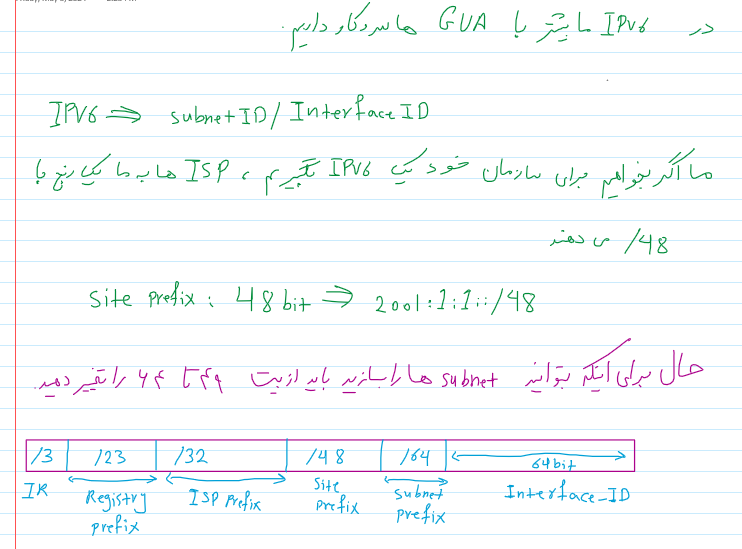 در IPv6 ما بیشتر با GUA ها سروکار داریم.
IPV6 ⇒ subnet ID / Interface ID
ما اگر بخواهیم برای سازمان خود یک IPV6 بگیریم، ISP ها به ما یک رنج با
/48 می دهند
Site prefix: 48 bit ⇒ 2001:1:1::/48
حال برای اینکه بتوانید subnet ها را بسازید باید از بیت ۴۹ تا ۶۴ را تغییر دهید.
/3 /23 /32 /48 /64 64bit
IR Registry prefix ISP Prefix Site prefix Subnet prefix Interface_ID